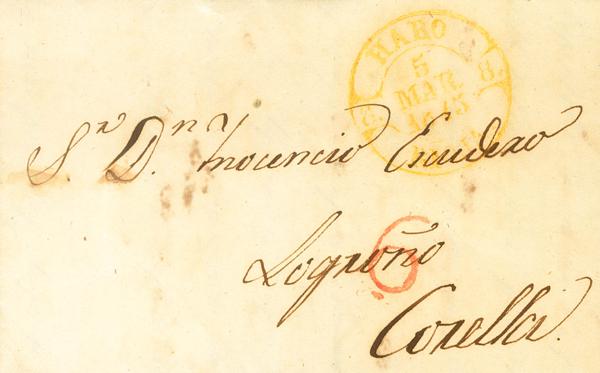 HARO
5
MAR
1843
8.
Sr. Dn. Inocencio Escudero
6
Logroño
Corella.